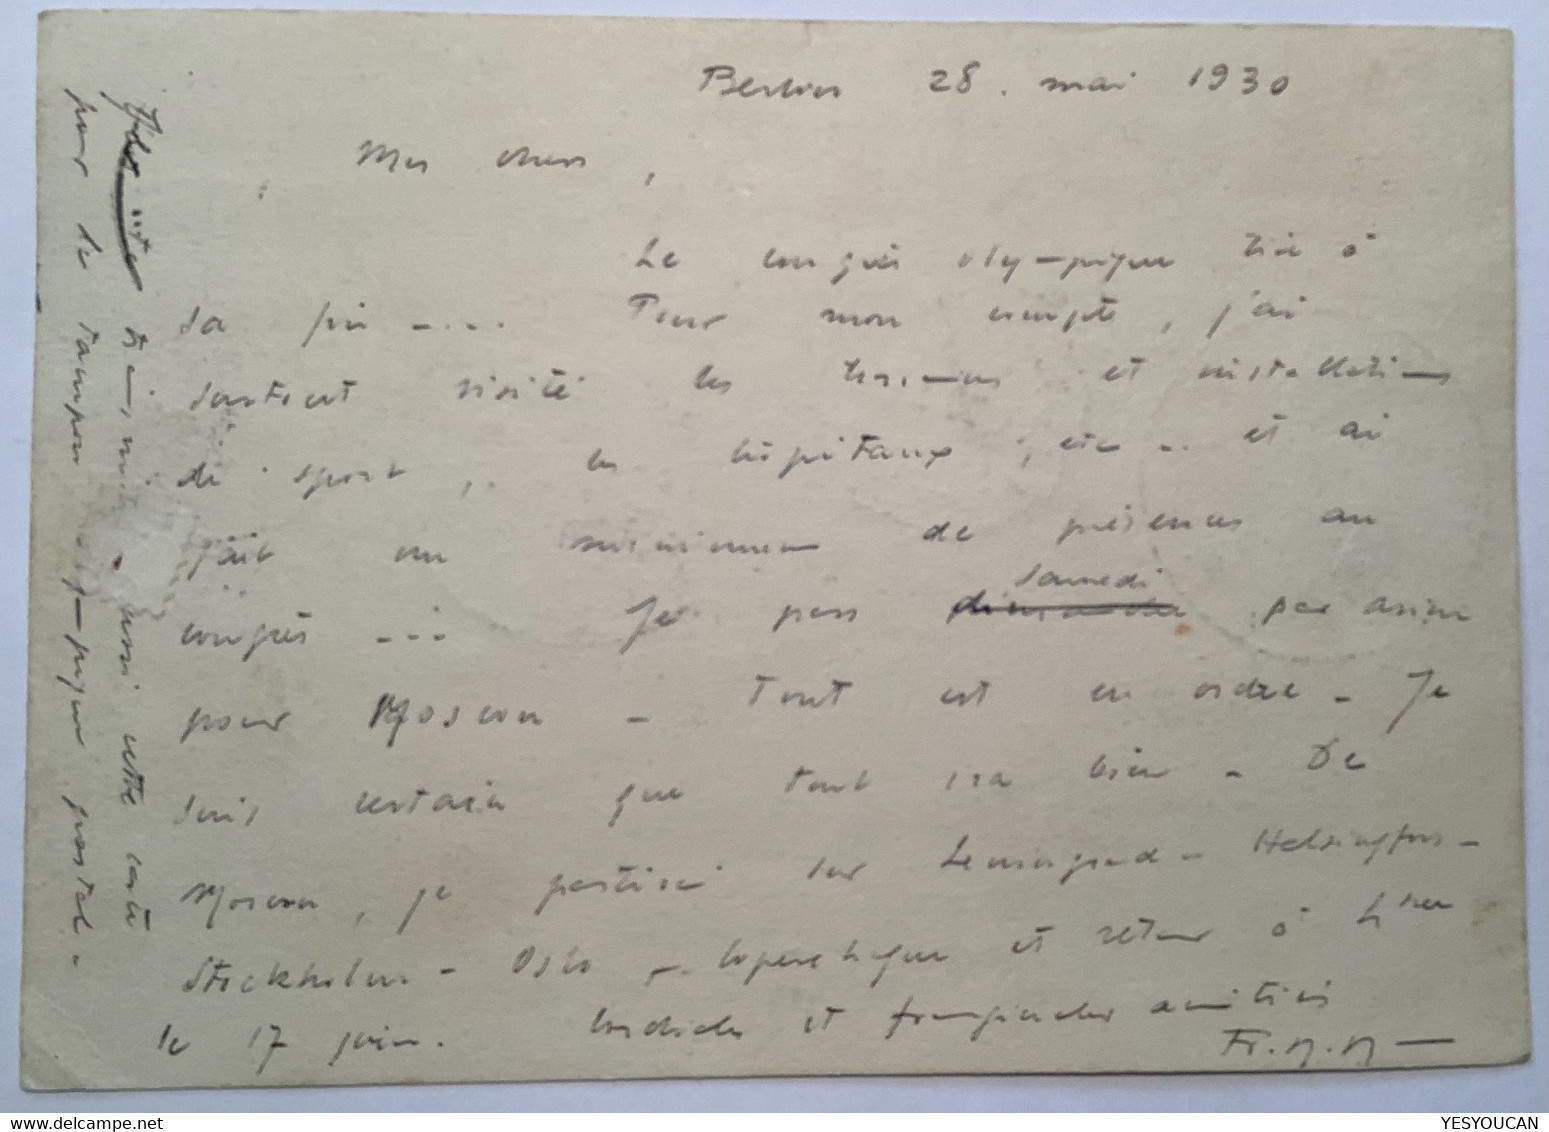 Berlin 28. mai 1930
Mes chers,
Le congrès olympique tire à
sa fin -.... Pour mon compte, j'ai
surtout visité les terrains et installations
de sport, les hôpitaux, etc... et ai
fait un minimum de présences au
congrès ... Je pars samedi par avion
pour Moscou - Tout est en ordre - Je
suis certain que tout ira bien - De
Moscou, je partirai sur Leningrad - Helsingfors -
Stockholm - Oslo - Copenhague et retour à L'sanne
le 17 juin. Cordiales et amitiés
Fr. M. M -
aussi cette carte
pour le tampon olympique postal -
YESYOUCAN